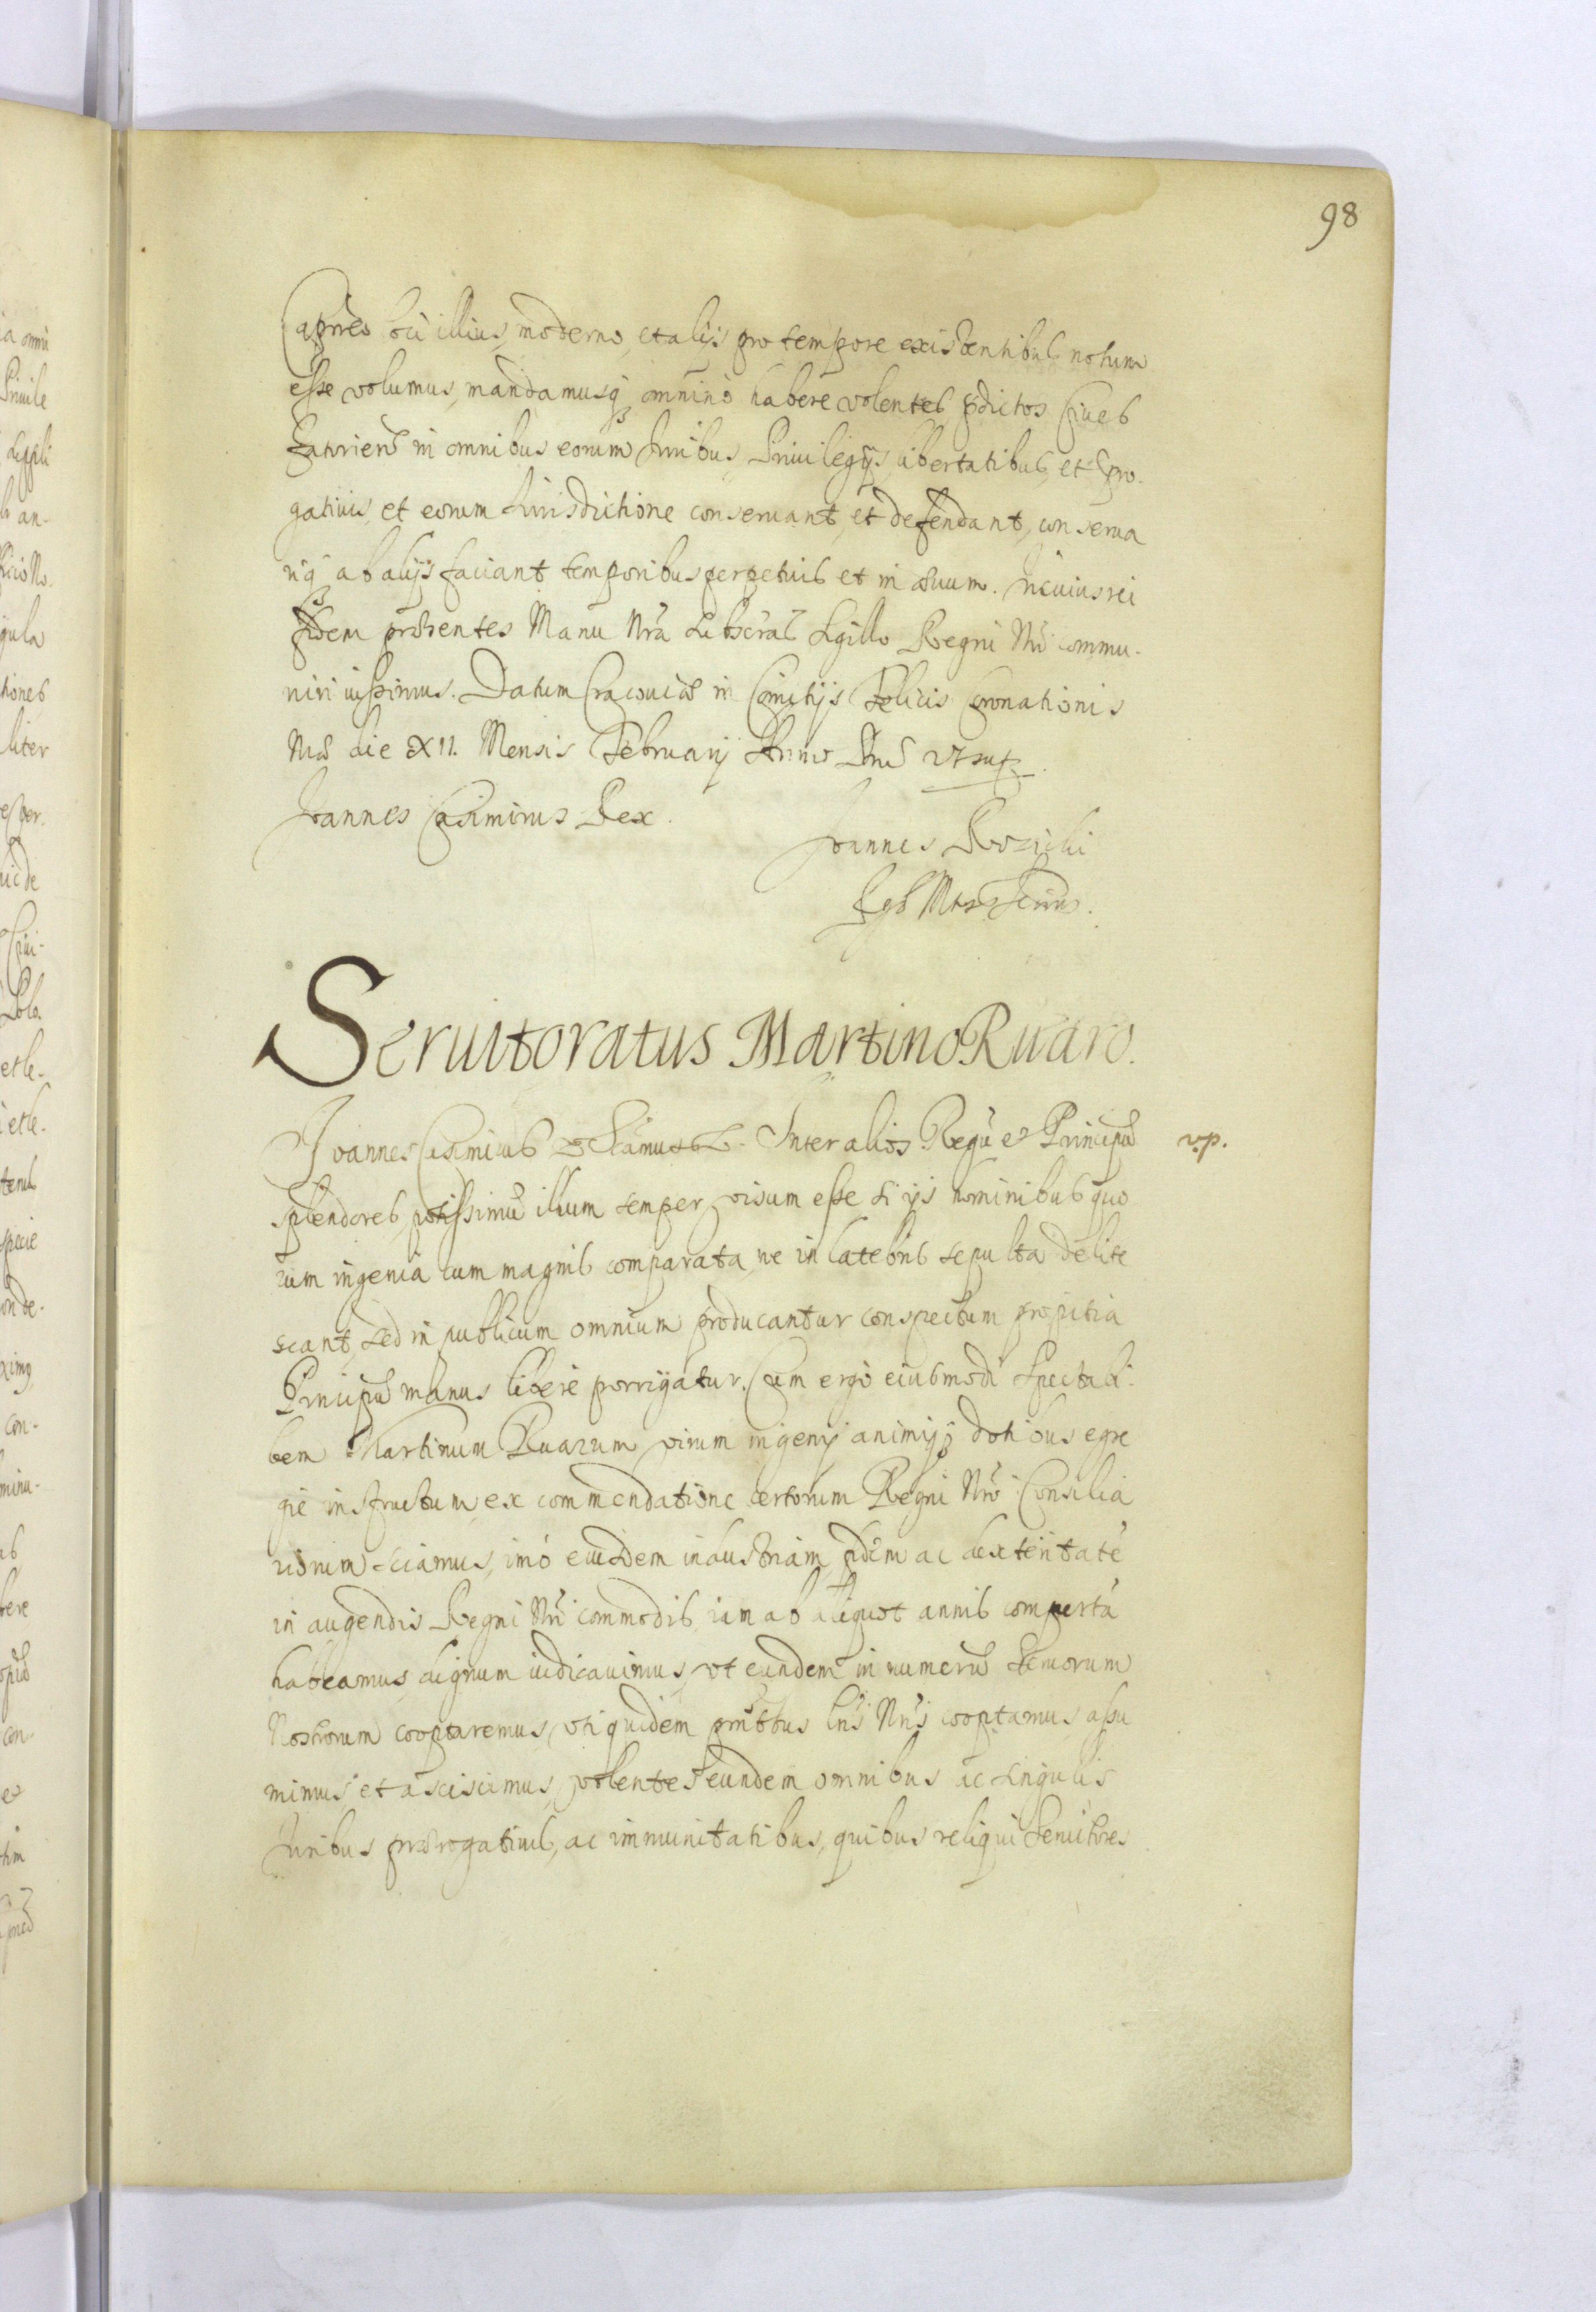 98
Capneo loci illius, moderno, et alijs pro tempore existentibus notum
esse volumus, mandamusq omnino habere volentes pdictos Cives
in omnibus eorum Iuribus Priuilegijs, libertatibus, et Prero-
gatiuis, et eorum Iurisdictione conseruant, et defendant, conserua
riq ab alijs faciant temporibus perpetuis et in æuum. In cuius rei
fidem præsentes Manu Nrã subscras Sigillo Regni Nri commu-
niri iussimus. Datum Cracouiæ in Comitijs Felicis Coronationis
Nræ die XII. Mensis Februarij Anno Dni vt sup.
Ioannes Casimirus Rex.
Ioannes
Rgæ Mttis Secrius.
Seruitoratus Martino Ruaro.
Ioannes Casimirus Inter alios Regũ et Principũ v.p.
splendores, potissimũ illum semper visum esse si ijs hominibus quo
rum ingenia cum magnis comparata, ne in latebris sepulta delite
scant, sed in publicum omnium producantur conspectum propitia
Principũ manus libere porrigatur. Cum ergo eiusmodi Spectabi-
lem Martinum Ruarum, virum ingenij animiq dotibus egre
gie instructum, ex commendatione certorum Regni Nri Consilia
riorum sciamus, imo eiusdem industriam, fidem ac dexteritatẽ
in augendis Regni Nri commodis, iam ab aliquot annis compertã
habeamus, dignum iudicauimus, vt eundem in numerũ Seruorum
Nostrorum cooptaremus, vti quidem pntibus Lris Nris cooptamus, assu
mimus et asciscimus, volentes eundem omnibus ac singulis
Iuribus prærogatiuis, ac immunitatibus, quibus reliqui Seruitores